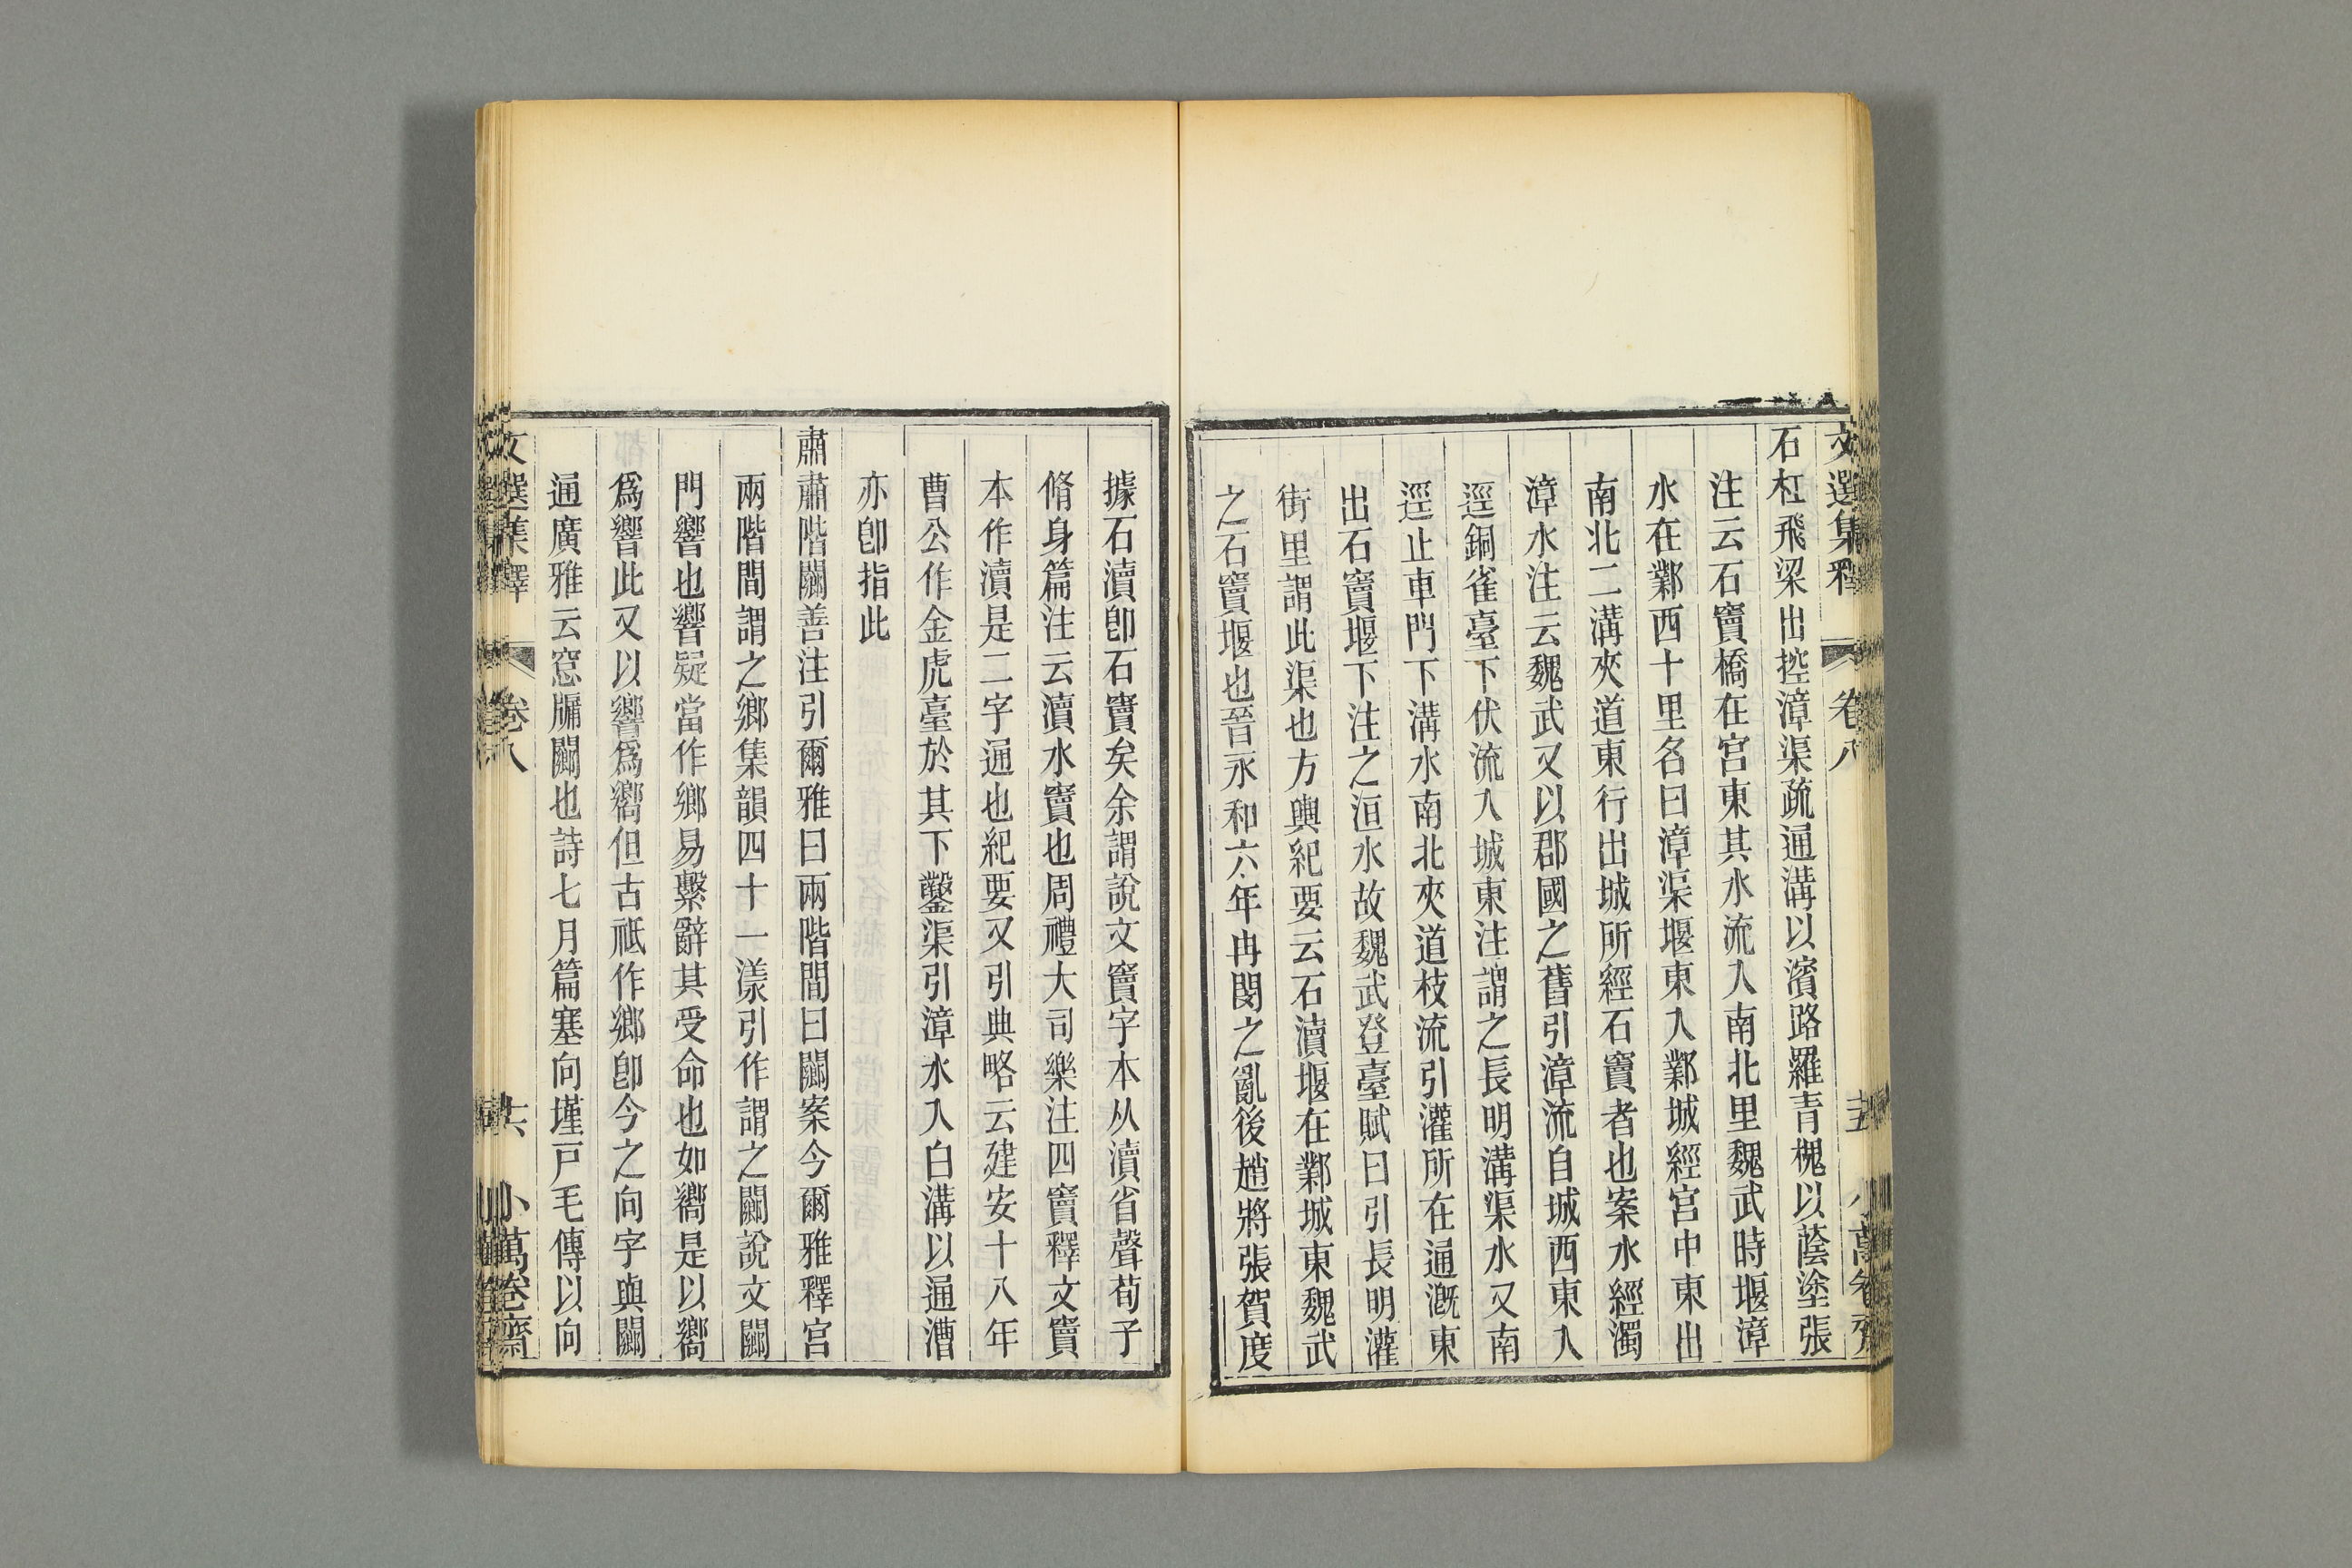 文選集釋 卷八 十五 小萬卷齋
石杠飛梁出控漳渠疏通溝以濱路羅青槐以蔭塗張
注云石竇橋在宮東其水流入南北里魏武時堰漳
水在鄴西十里名曰漳渠堰東入鄴城經宮中東出
南北二溝夾道東行出城所經石竇者也案水經濁
漳水注云魏武又以郡國之舊引漳流自城西東入
逕銅雀臺下伏流入城東注謂之長明溝渠水又南
逕止車門下溝水南北夾道枝流引灌所在通溉東
出石竇堰下注之洹水故魏武登臺賦曰引長明灌
街里謂此渠也方輿紀要云石瀆堰在鄴城東魏武
之石竇堰也晉永和六年冉閔之亂後趙將張賀度
據石瀆卽石竇矣余謂說文竇字本从瀆省聲荀子
脩身篇注云瀆水竇也周禮大司樂注四竇釋文竇
本作瀆是二字通也紀要又引典略云建安十八年
曹公作金虎臺於其下鑿渠引漳水入白溝以通漕
亦卽指此
肅肅階闞善注引爾雅曰兩階間曰闞案今爾雅釋宮
兩階間謂之鄉集韻四十一漾引作謂之闞說文闞
門響也響疑當作鄉易繫辭其受命也如嚮是以嚮
爲響此又以響爲嚮但古祗作鄉卽今之向字與闞
通廣雅云窓牖闞也詩七月篇塞向墐戸毛傳以向
文選集釋 卷八 十六 小萬卷齋